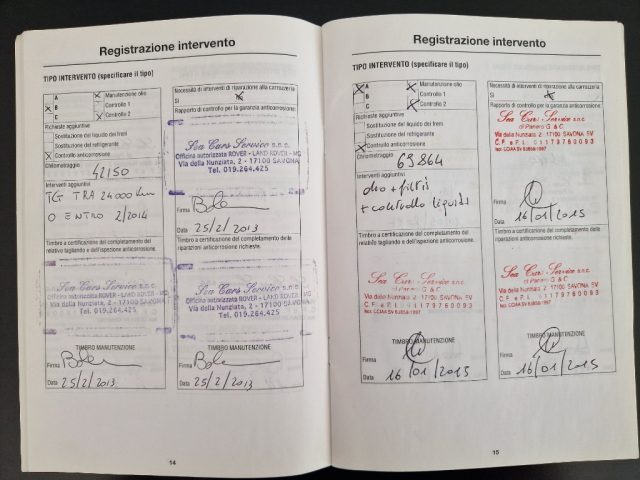 Registrazione intervento
TIPO INTERVENTO (specificare il tipo)
A
Manutenzione olio
B
Controllo 1
C
Controllo 2
Richieste aggiuntive
Sostituzione del liquido dei freni
Sostituzione del refrigerante
Controllo anticorrosione
Chilometraggio
42150
Interventi aggiuntivi
TGT TRA 24000 Km
O ENTRO 2/2014
Timbro a certificazione del completamento del
relativo tagliando e dell'ispezione anticorrosione.
Sea Cars Service s.n.c.
Officina autorizzata ROVER - LAND ROVER - MG
Via della Nunziata, 2 - 17100 SAVONA
Tel. 019.264.425
TIMBRO MANUTENZIONE
Firma
Data 25/2/2013
Necessità di interventi di riparazione alla carrozzeria
SI
Rapporto di controllo per la garanzia anticorrosione:
Sea Cars Service s.n.c.
Officina autorizzata ROVER - LAND ROVER - MG
Via della Nunziata, 2 - 17100 SAVONA
Tel. 019.264.425
Firma
Data 25/2/2013
Timbro a certificazione del completamento delle
riparazioni anticorrosione richieste.
Sea Cars Service s.n.c.
Officina autorizzata ROVER - LAND ROVER - MG
Via della Nunziata, 2 - 17100 SAVONA
Tel. 019.264.425
TIMBRO MANUTENZIONE
Firma
Data 25/2/2013
14
Registrazione intervento
TIPO INTERVENTO (specificare il tipo)
A
Manutenzione olio
B
Controllo 1
C
Controllo 2
Richieste aggiuntive
Sostituzione del liquido dei freni
Sostituzione del refrigerante
Controllo anticorrosione
Chilometraggio
69864
Interventi aggiuntivi
olio + filtri
+ controllo liquidi
Timbro a certificazione del completamento del
relativo tagliando e dell'ispezione anticorrosione.
Sea Car Service s.n.c.
di Panero G & C
Via della Nunziata, 2 - 17100 SAVONA SV
C.F. e P.I. 01179760093
TIMBRO MANUTENZIONE
Firma
Data 16/01/2015
Necessità di interventi di riparazione alla carrozzeria
SI
Rapporto di controllo per la garanzia anticorrosione:
Sea Car Service s.n.c.
di Panero G & C
Via della Nunziata, 2 - 17100 SAVONA SV
C.F. e P.I. 01179760093
Firma
Data 16/01/2015
Timbro a certificazione del completamento delle
riparazioni anticorrosione richieste.
Sea Car Service s.n.c.
di Panero G & C
Via della Nunziata, 2 - 17100 SAVONA SV
C.F. e P.I. 01179760093
TIMBRO MANUTENZIONE
Firma
Data 16/01/2015
15